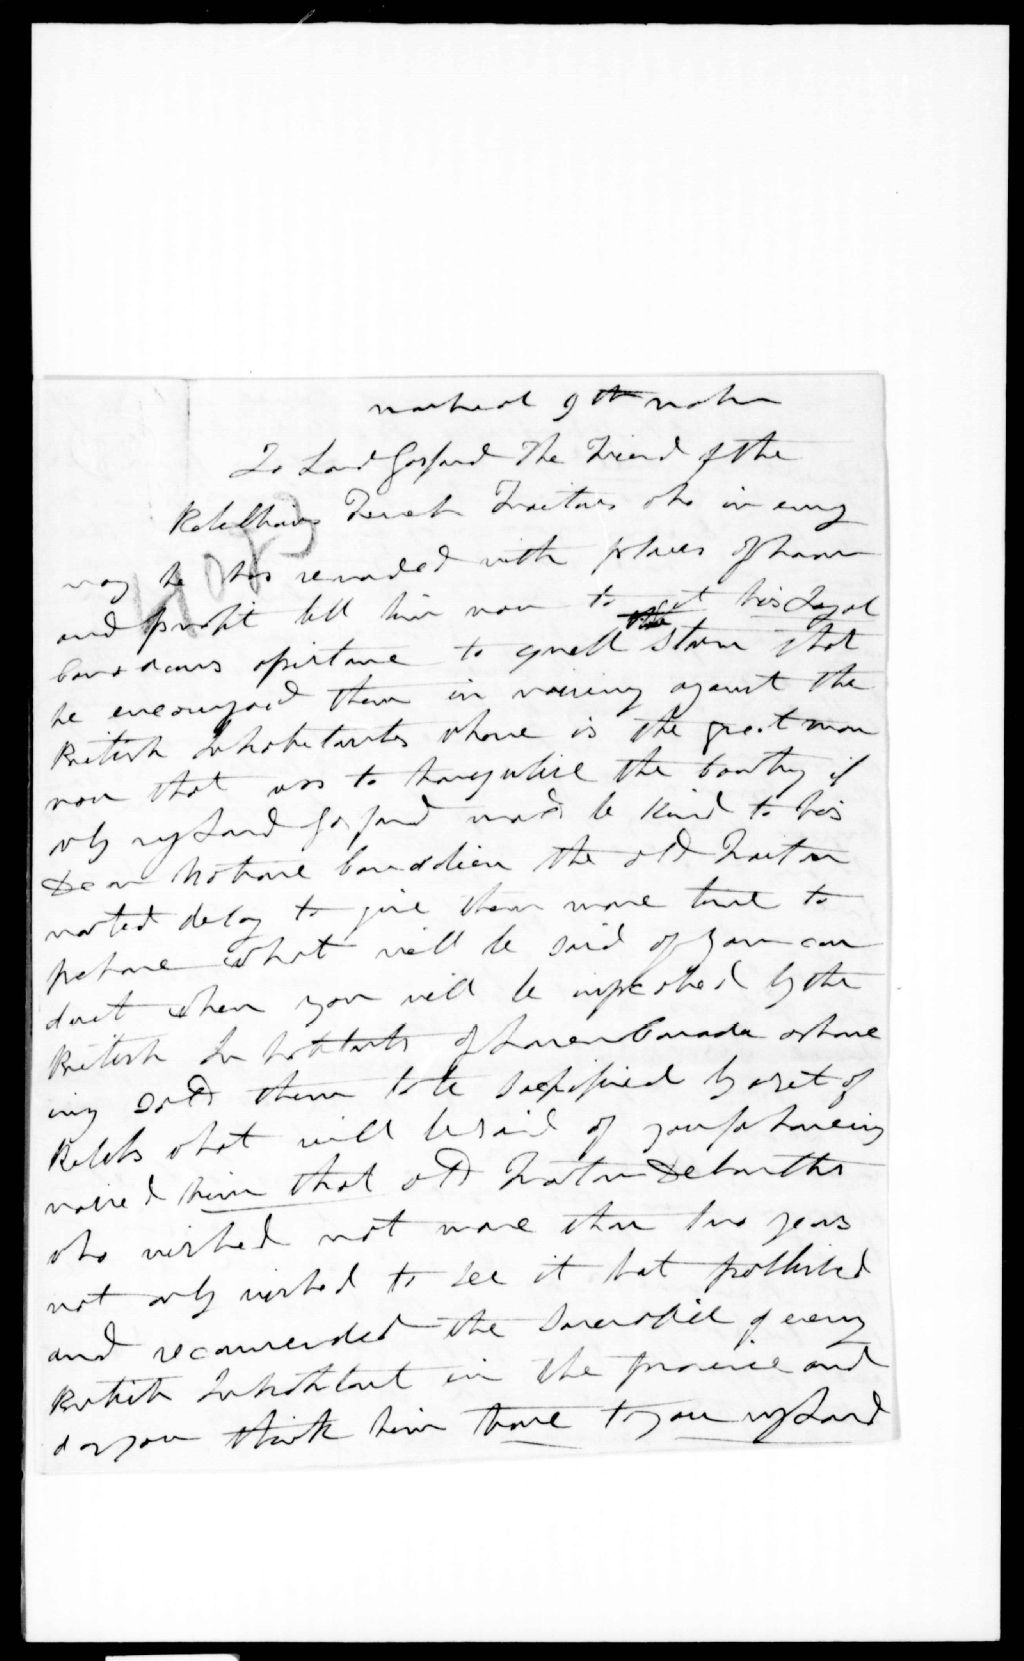 montreal 9th nober
To Lord Gosford The Friend of the
Rebellious French Traitors who in every
way he has rewarded with places of honor
and profit tell him now to get his Loyal
Canadians asistance to quell storm that
he encouraged them in raising against the
British Inhabitants whare is the great man
now that was to tranqulise the Contry if
only my Lord Gosford would be kind to his
Dear Canadien the old Traitor
wanted delay to give them more time to
what will be said of your con
duct when you will be impeched by the
British Inhabitants of Lower Canada
ing them to be by a set of
Rebels what will be said of your
him that old Traitor Debartzh
who wished not more than two years
not only wished to see it but published
and recommended the of every
British Inhabitant in the province and
do you think him to you my Lord